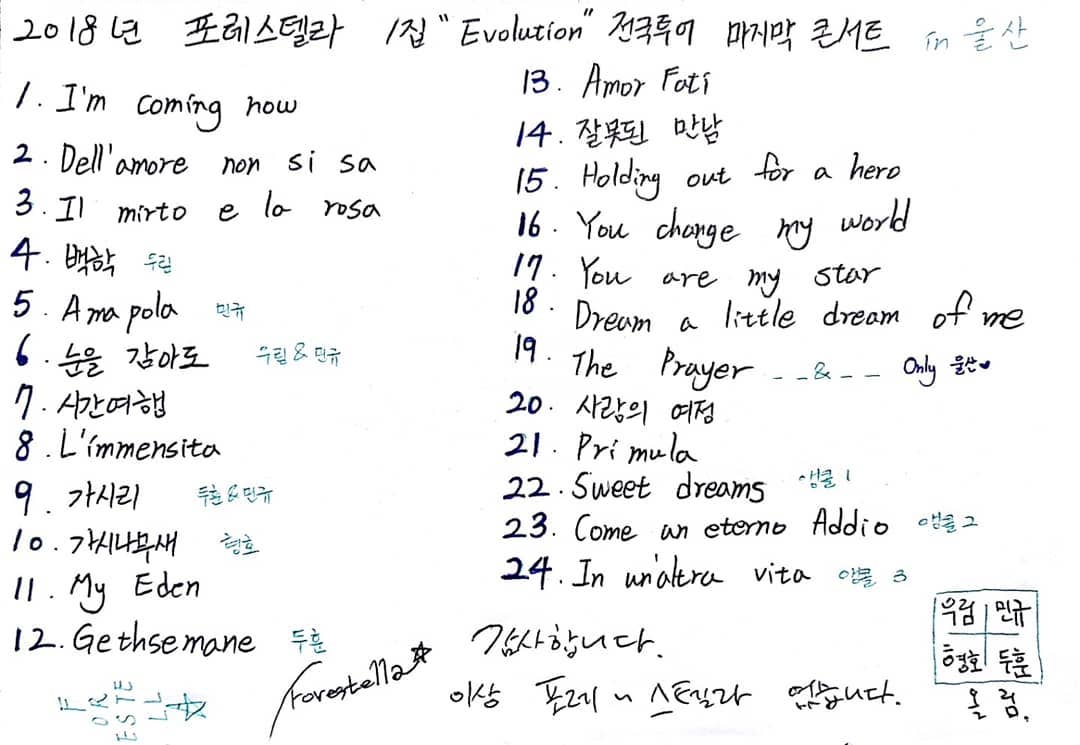 2018년 포레스텔라 1집 "Evolution" 전국투어 마지막 콘서트 in 울산
1. I'm coming now
2. Dell'amore non si sa
3. Il mirto e la rosa
4. 백학 우림
5. Amapola 민규
6. 눈을 감아도 우림 & 민규
7. 시간여행
8. L'immensita
9. 가시리 두훈 & 민규
10. 가시나무새 형호
11. My Eden
12. Gethsemane 두훈
13. Amor Fati
14. 잘못된 만남
15. Holding out for a hero
16. You change my world
17. You are my star
18. Dream a little dream of me
19. The Prayer _ _ & _ _ Only 울산♥
20. 사랑의 여정
21. Primula
22. Sweet dreams 앵콜 1
23. Come un eterno Addio 앵콜 2
24. In un'altra vita 앵콜 3
F
OR
ESTE
LL
A
Forestella☆
감사합니다.
이상 포레~스텔라 였습니다.
우림 민규
형호 두훈
올림.